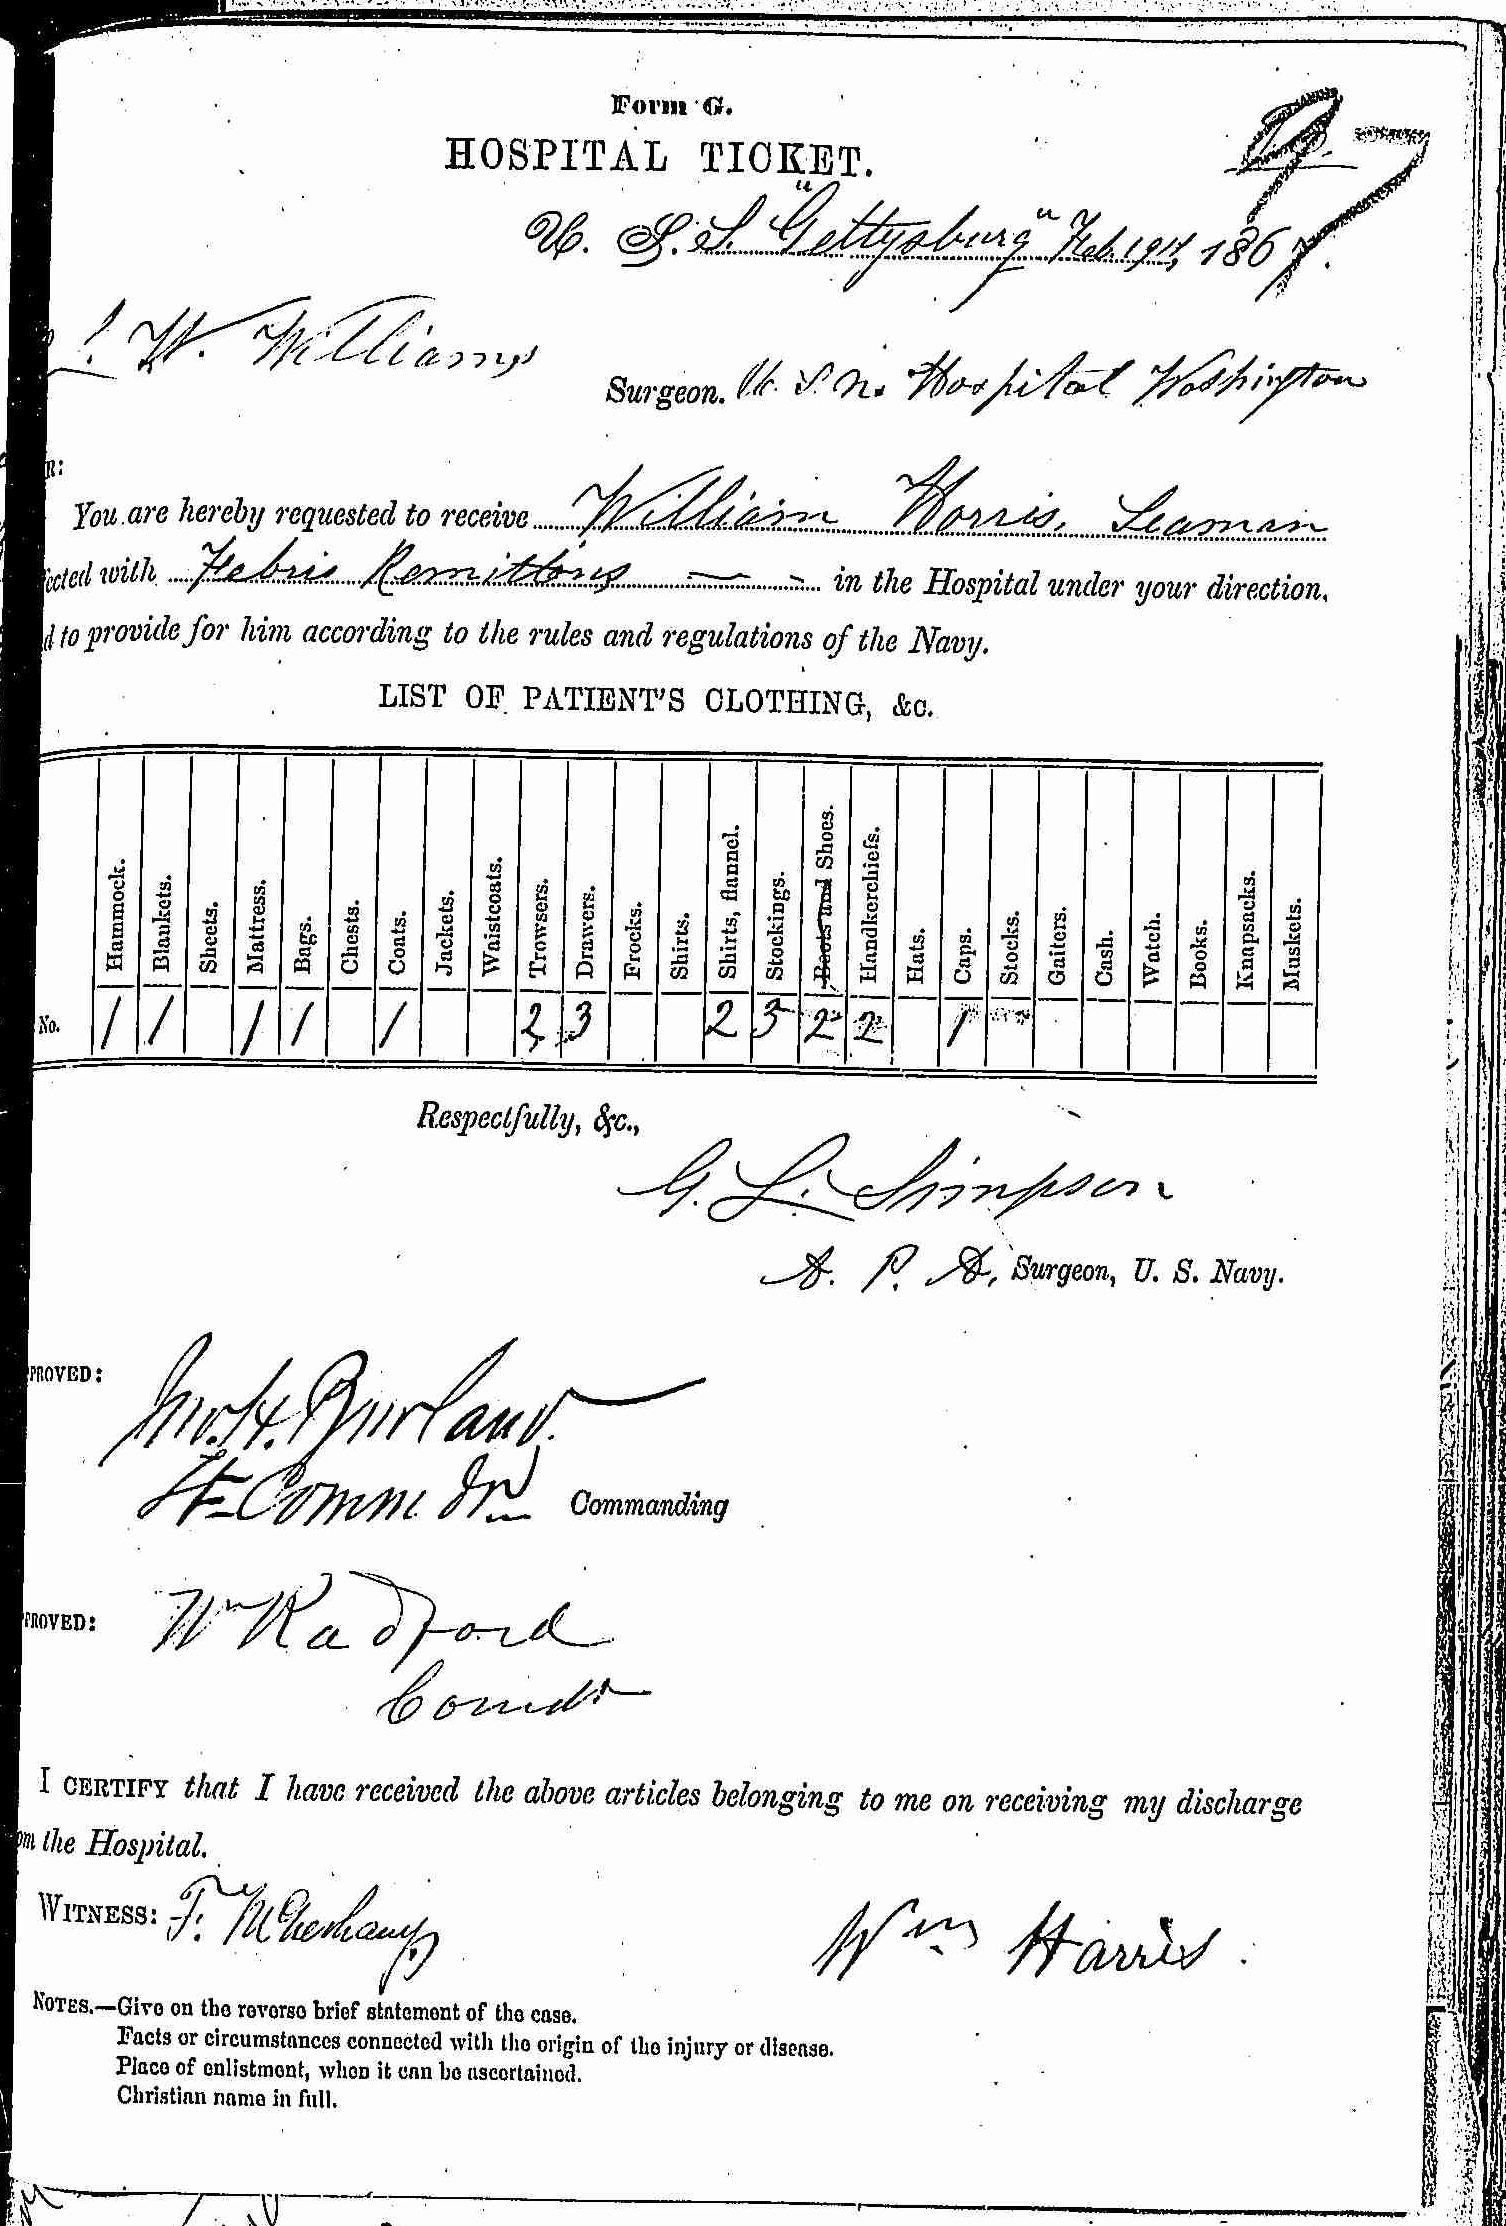 Form G.
HOSPITAL TICKET.
U. S. S. "Gettysburg" Feb. 19th, 1867.
W. Williams
Surgeon. U. S. N. Hospital Washington
You are hereby requested to receive William Harris, Seaman
ected with Febris Remittens in the Hospital under your direction,
d to provide for him according to the rules and regulations of the Navy.
LIST OF PATIENT'S CLOTHING, &c.
Hammock. Blankets. Sheets. Mattress. Bags. Chests. Coats. Jackets. Waistcoats. Trowsers. Drawers. Frocks. Shirts. Shirts, flannel. Stockings. Boots and Shoes. Handkerchiefs. Hats. Caps. Stocks. Gaiters. Cash. Watch. Books. Knapsacks. Muskets.
No. 1 1 1 1 1 2 3 2 3 2 2 1
Respectfully, &c.,
G. L. Simpson
A. P. A. Surgeon, U. S. Navy.
PPROVED:
H.
Lt Commdr Commanding
PROVED: Wm Radford
Comdr
I CERTIFY that I have received the above articles belonging to me on receiving my discharge
om the Hospital.
WITNESS: F.
Wm Harris.
NOTES.—Give on the reverse brief statement of the case.
Facts or circumstances connected with the origin of the injury or disease.
Place of enlistment, when it can be ascertained.
Christian name in full.